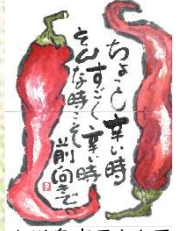 ちょっと辛い時
すごく辛い時
そんな時こそ
前向きで